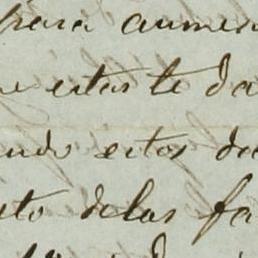 para aumen
e estas te da
ndo estos de
sto delas fa